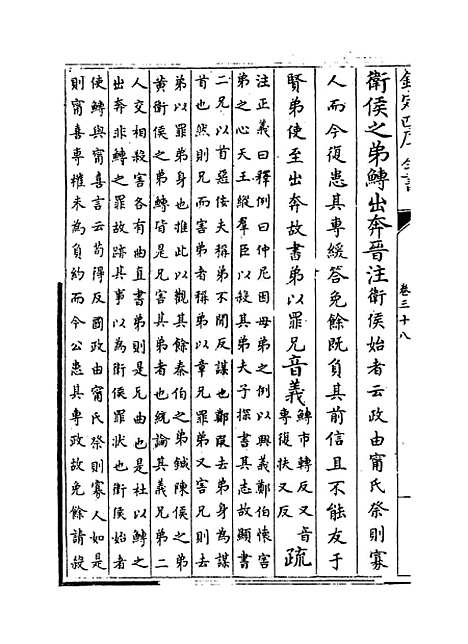 欽定四庫全書
卷三十八
衛侯之弟鱄出奔晉注衛侯始者云政由甯氏祭則寡
人而今復患其專緩荅免餘既負其前信且不能友于
賢弟使至出奔故書弟以罪兄音義鱄市轉反又音專復扶又反疏
注正義曰釋例曰仲尼因母弟之例以興義鄭伯懷害
弟之心天王縱羣臣以殺其弟夫子探書其志故顯書
二兄以首惡佞夫稱弟不聞反謀也鄭段去弟身為謀
首也然則兄而害弟者稱弟以章兄罪弟又害兄則去
弟以罪弟身也推此以觀其餘秦伯之弟鍼陳侯之弟
黄衛侯之弟鱄皆是兄害其弟者也統論其義兄弟二
人交相殺害各有曲直書弟則是兄曲也是杜以鱄之
出奔非鱄之罪故跡其事以為衛侯罪狀也衛侯始者
使鱄與甯喜言云苟得反國政由甯氏祭則寡人如是
則甯喜專權未為負約而今公患其專政故免餘請殺